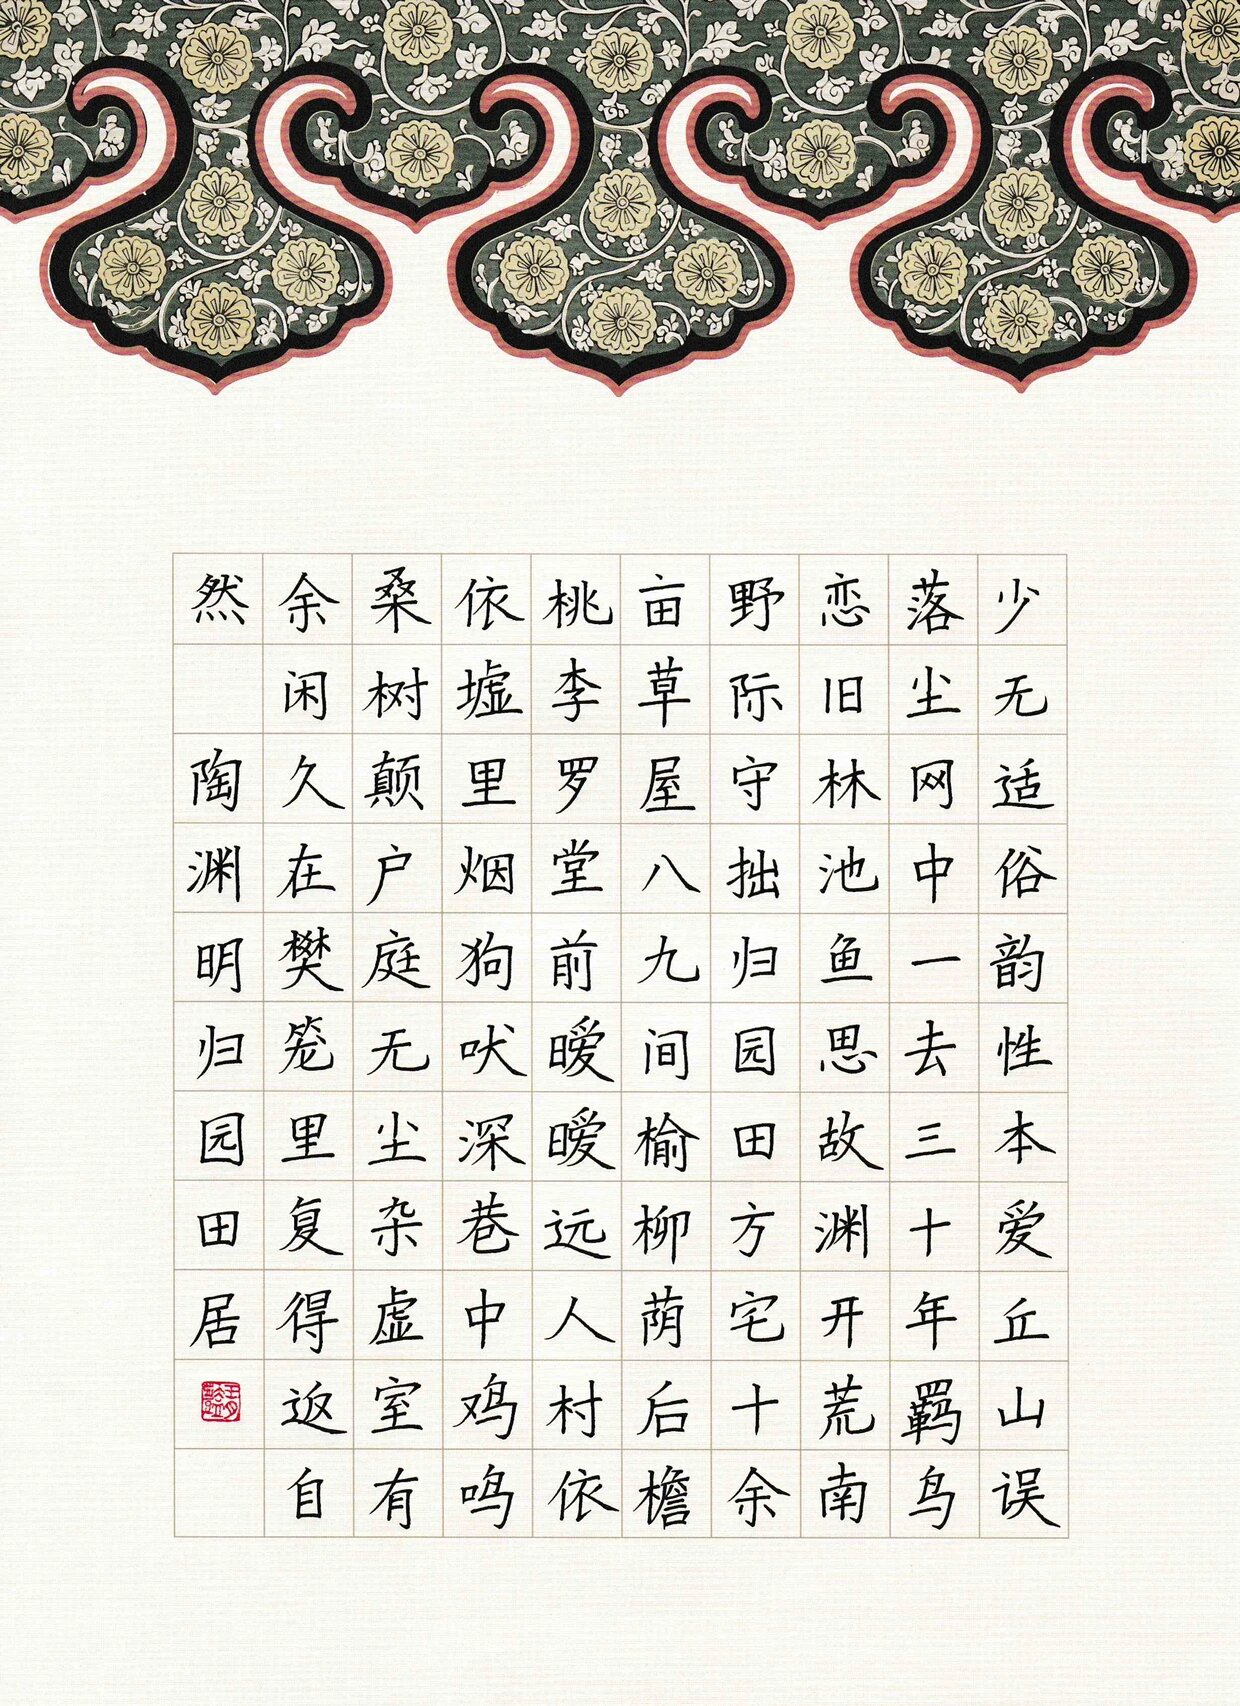 少无适俗韵性本爱丘山误
落尘网中一去三十年羁鸟
恋旧林池鱼思故渊开荒南
野际守拙归园田方宅十余
亩草屋八九间榆柳荫后檐
桃李罗堂前暧暧远人村依
依墟里烟狗吠深巷中鸡鸣
桑树颠户庭无尘杂虚室有
余闲久在樊笼里复得返自
然 陶渊明归园田居